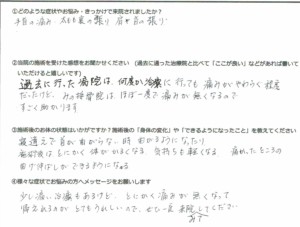 ①どのような症状やお悩み・きっかけで来院されましたか？
手首の痛み 太もも裏の張り 肩甲骨の張り
②当院の施術を受けた感想をお聞かせください（過去に通った治療院と比べて「ここが良い」などがあれば書いて
いただけると嬉しいです）
過去に行った病院は、何度か治療に行っても 痛みがやわらぐ程度
だったけど、みの接骨院は ほぼ一度で痛みが無くなるので
すごく助かります
③施術後のお体の状態はいかがですか？施術後の「身体の変化」や「できるようになったこと」を教えてください
寝違えで首が曲がらない時 曲がるようになったり
施術後はとにかく体がかるくなる 気持ちも軽くなる 痛かったところの
曲げ伸ばしができるようになる
④様々な症状でお悩みの方へメッセージをお願いします
少し痛い治療もあるけど、とにかく痛みが無くなって
帰れるのがとてもうれしいので、ぜひ一度来院してください